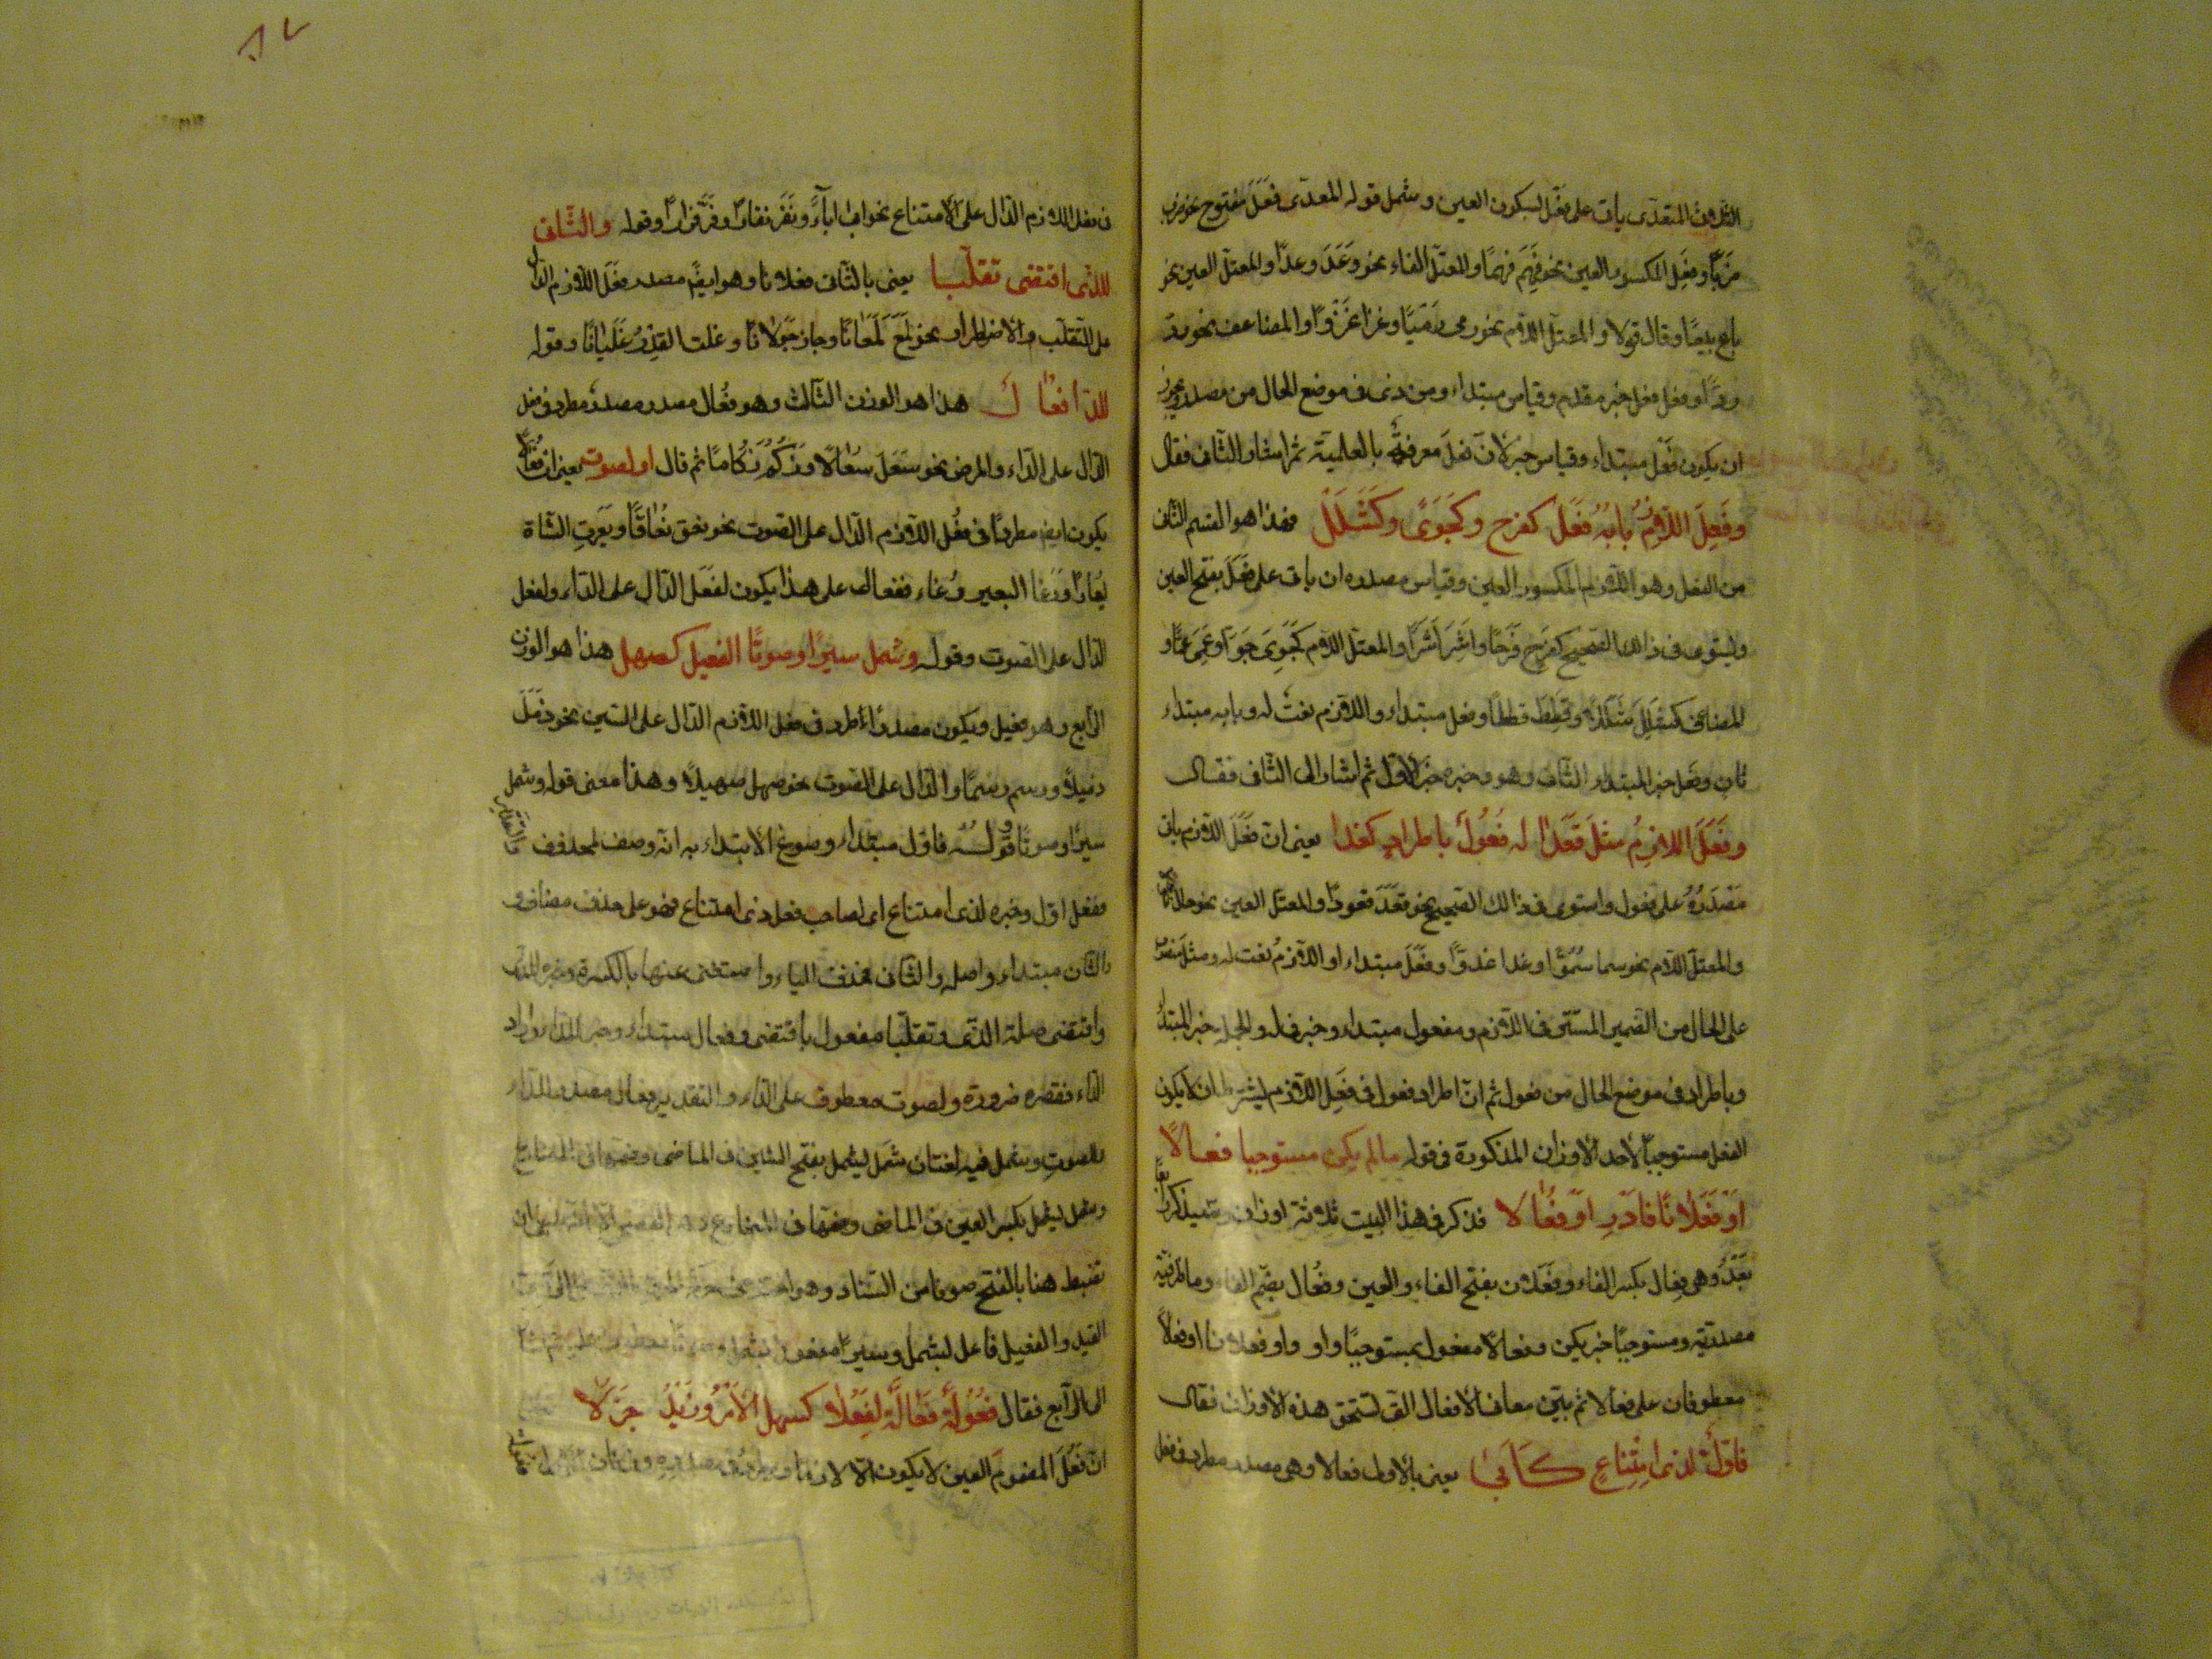 الثلاثى المتعدى يأتى على فَعْل بسكون العين وشمل قوله المعدى فَعَلَ مفتوح نحو ضرب
ضَرْبًا وفَعِلَ المكسور العين نحو فَهِمَ فهمًا والمعتلّ الفاء نحو وَعَدَ وعدًا والمعتلّ العين نحو
باع بيعًا وقال قولا والمعتلّ اللام نحو رمى رَمْيًا وغزا غَزْوًا والمضاعف نحو ردّ
ردًّا وفعل فعل خبر مقدم وقياس مبتداء ومن ذى فى موضع الحال من مصدر ويجوز
ان يكون فَعْل مبتداء وقياس خبر لانّ فعل معرفة بالعلمية ثم اشار الثانى فقال
وفَعِلَ اللازمُ بابُهُ فَعَلْ كفرح وكَجَوًى وكَشَلَلْ فهذا هو القسم الثانى
من الفعل وهو اللازم المكسور العين وقياس مصدره ان يأتى على فَعَلَ بفتح العين
ويستوى فى ذالك الصحيح كفرِح فَرَحًا واشِرَ اَشَرًا والمعتلّ اللام كجَوِىَ جَوًا وعَمِىَ عمًا و
المضاعف كشَلِلَ شَلَلاً وقَطِطَ قططًا وفعل مبتداء واللازم نعتٌ له وبابه مبتداء
ثان وفعل خبر المبتداء الثانى وهو وخبره خبر الاوّل ثم اشار الى الثالث فقال
وفَعَلَ اللازمُ مثلَ قَعَدَا له فُعُولٌ باطرادٍ كغدا يعنى انّ فَعَلَ اللازم يأتى
مَصْدَرُهُ على فعول واستوى فى ذالك الصحيح نحو قَعَدَ قعودًا والمعتلّ العين نحو حال
والمعتلّ اللام نحو سما سُمُوًّا وغدا غدوًّا وفَعَلَ مبتداء او اللازمُ نعت له ومثل منصوب
على الحال من الضمير المستتر فى اللازم وفعول مبتداء وخبره له والجملة خبر المبتداء
وباطراد فى موضع الحال من فعول ثم انّ اطراد فعول فى فَعَل اللازم يشترط ان لا يكون
الفعل مستوجبًا لأحد الأوزان المذكورة فى قوله مالم يكن مستوجبا فعالًا
اَوْ فَعَلانًا فادْرِ اوْ فُعَالا فذكر فى هذا البيت ثلاثة اوزان وسيذكر رابعًا
بَعْدُ وهى فِعال بكسر الفاء وفَعَلان بفتح الفاء والعين وفُعال بضم الفاء وما ظرفية
مصدرية ومستوجبًا خبر يكن وفعالًا مفعول بمستوجبًا واو فعلانا او فعالاً
معطوفان على فعالا ثم بيّن معانى الأفعال التى تستحق هذه الأوزان فقال
فاَوّلٌ لذى امْتِناعٍ كَاَبىٰ يعنى بالأول فعالا وهى مصدر مطرد فى فعل
فى فعل اللازم الدّال على الامتناع نحو ابى اباءً ونَفَر نفارًا وفَرَّ فرارًا وقوله والثّانى
للذى اقتضى تقلّبا يعنى بالثّانى فعلانا وهو ايضًا مصدر فَعَلَ اللازم الدّال
على التقلّب والاضطراب نحو لَمَعَ لَمَعَانًا وجال جَوَلانًا وغلت القِدْرُ غَلَيانًا وقوله
للدّا فُعَالٌ هذا هو الوزن الثّالث وهو فُعَال مصدر مطرد فى فعل
الدّال على الدّاء والمرض نحو سَعَلَ سُعَالًا وزَكُمَ زُكَامًا ثم قال او لصوت يعنى ان فُعَالًا
يكون ايضًا مطردًا فى فَعَل اللازم الدّال على الصّوت نحو نعق نُعَاقًا ويَعَرتِ الشاة
يُعارًا ورَغَا البعير رُغاء ففعال على هذا يكون لفَعَل الدّال على الدّاء ولفعل
الدّال على الصّوت وقوله وشمل سيرًا وصوتًا الفعيل كصهل هذا هو الوزن
الرّابع وهو فعيل ويكون مصدرًا مطرد فى فعل اللازم الدّال على السّير نحو ذَمَلَ
ذميلاً ورسم رسيمًا والدّال على الصّوت نحو صهل صهيلاً وهذا معنى قوله وشمل
سيرًا وصوتًا وقوله فاوّل مبتداء وسوغ الأبتداء به انه وصف لمحذوف
ففعل اوّل وخبره لذى امتناع اى لصاحب فعل ذى امتناع فهو على حذف مضاف و
والثان مبتداء واصله والثانى فحذف الياء واستغنى عنها بالكسرة وخبره للذى
واقتضى صلة الذى وتقلّبا مفعول باقتضى وفعال مبتداء وخبره للدّاء واراد
الدّاء فقصره ضرورة ولصوت معطوف على الدّاء والتقدير فعال مصدر للدّاء
وللصوت وشمل فيه لغتان شَمَل يشمل بفتح الشّين فى الماضى وضمّها فى المضارع
وشمل يشمل بكسر العين فى الماضى وفتحها فى المضارع
تضبط هنا بالفتح صونا من السّناد وهو
القيد والفعيل فاعل لشمل وسيرًا مفعول بشمل
الى الرّابع فقال فُعُولَةٌ فَعَالَةٌ لفَعُلا كسهل الأمْرُ وزَيْدٌ جَزُلا
انّ فَعُلَ المضموم العين لا يكون الّا لازما